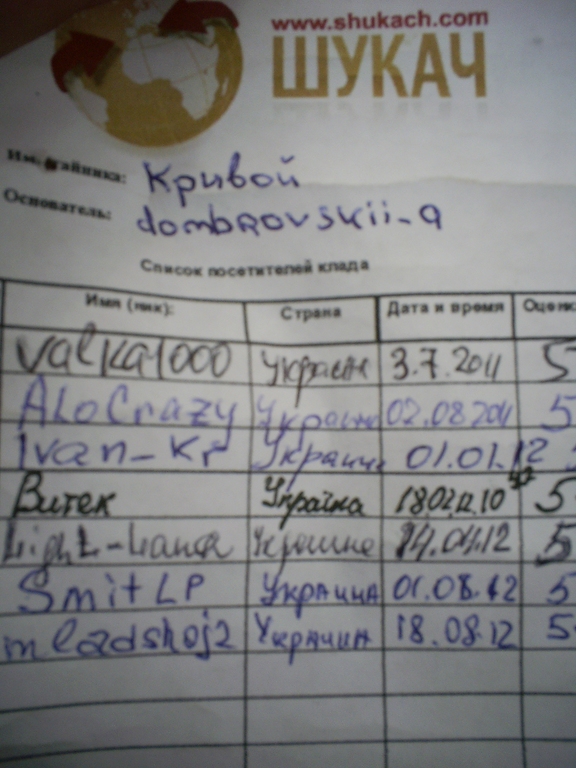 www.shukach.com
ШУКАЧ
Имя тайника: Кривой
Основатель: dombrovskii_a
Список посетителей клада
Имя (ник): Страна Дата и время Оценк
valka1000 Украина 3.7.2011 5
ALoCrazy Украина 02.08.2011 5
Ivan_Kr Украина 01.01.12
Витек Україна 18.02.12 10 5
Украина 14.04.12 5
SmitLP Украина 01.08.12 5
mladshoj2 Украина 18.08.12 5